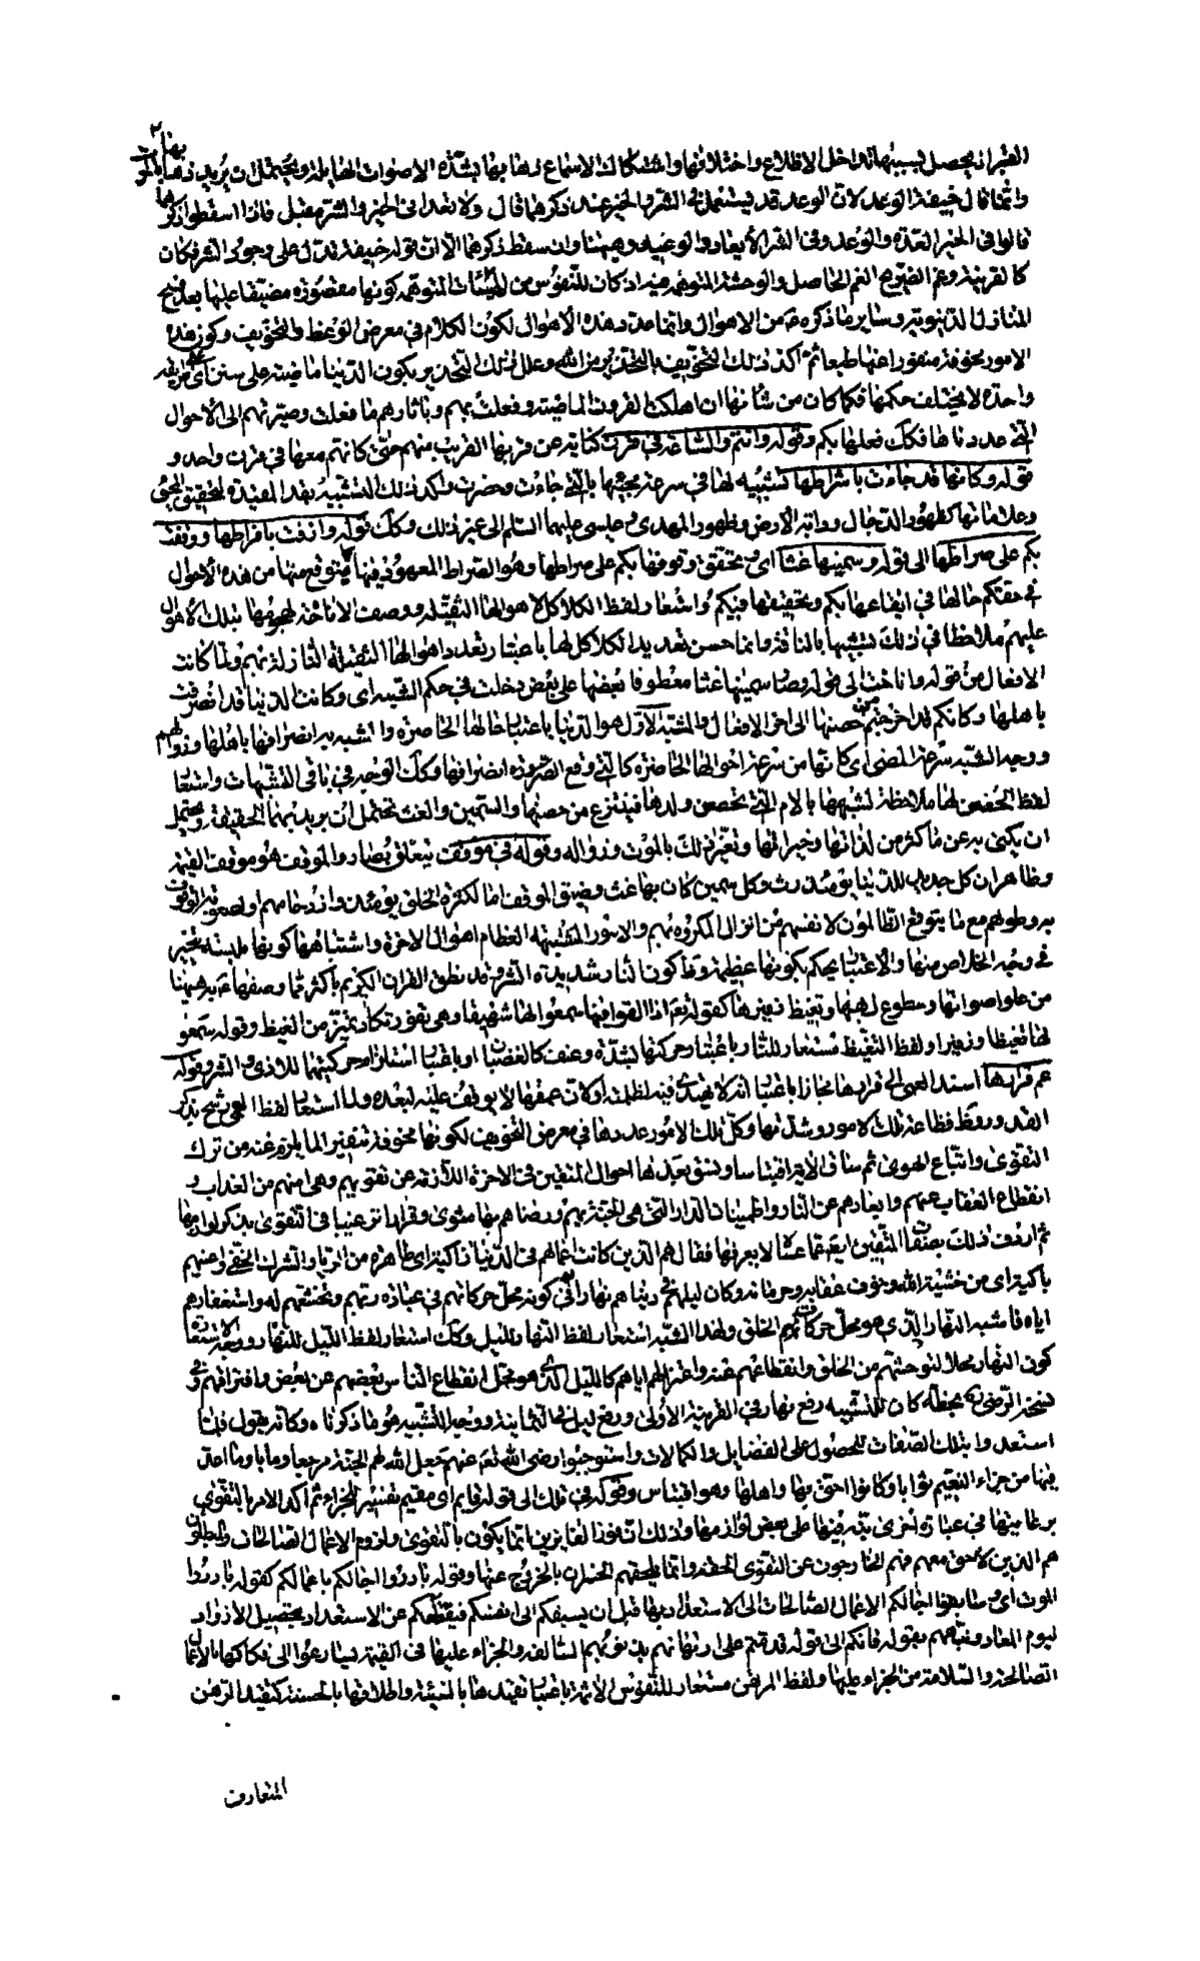 القبر اذ يحصل بسببها تداخل الاضلاع واختلافها واستكاك الاسماع ذهابها بشدة الاصوات الهايلة ويحتمل ان يريد ذهابها بالموت
وانما قال خيفة الوعد لان الوعد قد يستعمل في الشر والخير عند ذكرهما قال ولا تعداني الخير والشر مقبل فاذا اسقطوا ذكرهما
قالوا في الخير العدة والوعد وفي الشر الايعاد والوعيد وههنا وان سقط ذكرهما الا ان قوله خيفة تدل على وجود الشر فكان
كالقرينة وغم الضريح الغم الحاصل والوحشة المتوهمة فيه اذ كان للنفوس من الهيئات المتوهمة كونها مقصورة مضيقا عليها بعد فسح
المنازل الدنيوية وساير ما ذكره من الاهوال وانما عدد هذه الاهوال لكون الكلام في معرض الوعظ والتخويف وكون هذه
الامور مخوفة منفورا عنها طبعا ثم اكد ذلك التخويف بالتحذير من الله وعلل ذلك التحذير بكون الدنيا ماضية على سنن اى طريقة
واحدة لا يختلف حكمها فكما كان من شأنها ان اهلكت القرون الماضية وفعلت بهم وباثارهم ما فعلت وصيرتهم الى الاحوال
التي عددناها فكك فعلها بكم وقوله وانتم والساعة في قرن كناية عن قربها القريب منهم حتى كانهم معها في قرن واحد و
قوله وكانها قد جاءت باشراطها تشبيه لها في سرعة مجيئها بالتي جاءت وحضرت واكد ذلك التشبيه بقد المفيدة لتحقيق المجئ
وعلاماتها كظهور الدجال ودابة الارض وظهور المهدى وعيسى عليهما السلم الى غير ذلك وكك قوله وازفت بافراطها ووقفت
بكم على صراطها الى قوله وسمينها غثا اى وتحقق وقوفها بكم على صراطها وهو الصراط المعهود فيها يتوقع منها من هذه الاهوال
في حقكم حالها في ايقاعها بكم وتحقيقها فيكم واستعار لفظ الكلاكل لاهوالها الثقيلة ووصف الاناخة لهجومها بتلك الاهوال
عليهم ملاحظا في ذلك تشبيهها بالناقة وانما حسن تعديد الكلاكل لها باعتبار تعدد اهوالها الثقيلة النازلة بهم ولما كانت
الافعال من قوله واناخت الى قوله وصار سمينها غثا معطوفا بعضها على بعض دخلت في حكم التشبيه اى وكانت الدنيا قد انصرفت
باهلها وكانكم قد اخرجتم من حضنها الى اخر الافعال والمشبه الاول هو الدنيا باعتبار حالها الحاضرة والمشبه به انصرافها باهلها وزوالهم
ووجه الشبه سرعة المضى اى كانها من سرعة احوالها الحاضرة كالتي وقع انصرافها وكك الوجه في باقى التشبيهات واستعار
لفظ الحضن لها ملاحظة لشبهها بالام التي تحضن ولدها فينتزع من حضنها والسمين والغث يحتمل ان يريد بهما الحقيقة ويحتمل
ان يكنى به عن ما كثر من لذاتها وخيراتها وتغير ذلك بالموت وزواله وقوله في موقف يتعلق بصار والموقف هو موقف القيمة
وظاهر ان كل جديد للدنيا يومئذ رث وكل سمين كان بها غث وضيق الموقف اما لكثرة الخلق يومئذ وازدحامهم او لصعوبة الوقوف
به وطوله مع ما يتوقع الظالمون لانفسهم من انزال المكروه بهم والامور المشتبهة العظام اهوال الاخرة واشتباهها كونها ملبسة يتحير
في وجه الخلاص منها والاعتبار يحكم بكونها عظيمة وظ كون النار شديدة الشر وقد نطق القران الكريم باكثر مما وصفها به ههنا
من علو اصواتها وسطوع لهبها وتغيظ زفيرها كقوله تعم اذا القوا فيها سمعوا لها شهيقا وهى تفور تكاد تميز من الغيظ وقوله سمعوا
لها تغيظا وزفيرا ولفظ التغيظ مستعار للنار باعتبار حركتها بشدة وعنف كالغضبان او باعتبار استلزام حركتهما للاذى والشر وقوله
عم قرارها اسند العمى الى قرارها مجازا باعتبار انه لا يهتدى فيه لظلمته او لان عمقها لا يوقف عليه لبعده ولما استعار لفظ العمى رشح بذكر
القدور وظ فظاعة تلك الامور وشدتها وكل تلك الامور عددها في معرض التخويف لكونها مخوفة تنفيرا لما يلزم عنه من ترك
التقوى واتباع الهوى ثم ساق الاية اقتباسا ونسق بعد لها احوال المتقين في الاخرة اللازمة عن تقويهم وهى امنهم من العذاب و
انقطاع العقاب عنهم وابعادهم عن النار واطمينان الدار التي هى الجنة بهم ورضاهم بها مثوى وقرارا ترغيبا في التقوى بذكر لوازمها
ثم اردف ذلك بصفات المتقين ايضا عمن لا يعرفها فقال هم الذين كانت اعمالهم في الدنيا زاكية اى طاهرة من الريا والشرك الخفى واعينهم
باكية اى من خشية الله وخوف عقابه وحرمانه وكان ليلهم في دنياهم نهارا في كونه محل حركاتهم في عبادة ربهم وتخشعهم له واستغفارهم
اياه فاشبه النهار الذى هو محل حركات الخلق ولهذا الشبه استعار لفظ النهار لليل وكك استعار لفظ الليل للنهار ووجه الاستعارة
كون النهار محلا لتوحشهم من الخلق وانقطاعهم عنه واعتزالهم اياهم كالليل الذى هو محل انقطاع الناس بعضهم عن بعض وافتراقهم وفى
نسخة الرضى بخطه كان للتشبيه رفع نهار في القرينة الاولى ورفع ليل في الثانية ووجه التشبيه هو ما ذكرناه وكانه يقول فلما
استعدوا بتلك الصفات للحصول على الفضايل والكمالات واستوجبوا رضى الله تعم عنهم جعل الله لهم الجنة مرجعا ومابا وما اعد
فيها من جزاء النعيم ثوابا وكانوا احق بها واهلها وهو اقتباس وقوله في ملك الى قوله قايم اى مقيم تفسير للجزاء ثم اكد الامر بالتقوى
برعايتها في عبارة اخرى نبه فيها على بعض لوازمها وذلك ان فوز الفايزين انما يكون بالتقوى ولزوم الاعمال الصالحات والمبطلون
هم الذين لا حق معهم فهم الخارجون عن التقوى الحقة وانما يلحقهم الخسران بالخروج عنها وقوله بادروا اجالكم باعمالكم كقوله بادروا
الموت اى سابقوا اجالكم الاعمال الصالحات الى الاستعداد بها قبل ان يسبقكم الى انفسكم فيقطعكم عن الاستعداد بتحصيل الازواد
ليوم المعاد ونبههم بقوله فانكم الى قوله قدمتم على ارتهانهم بذنوبهم السالفة والجزاء عليها في القيمة ليسارعوا الى فكاكها بالاعمال
الصالحة والسلامة من الجزاء عليها ولفظ المرتهن مستعار للنفوس الاثمة باعتبار تقيدها بالسيئة واطلاقها بالحسنة كتقيد الرهن
المتعارف